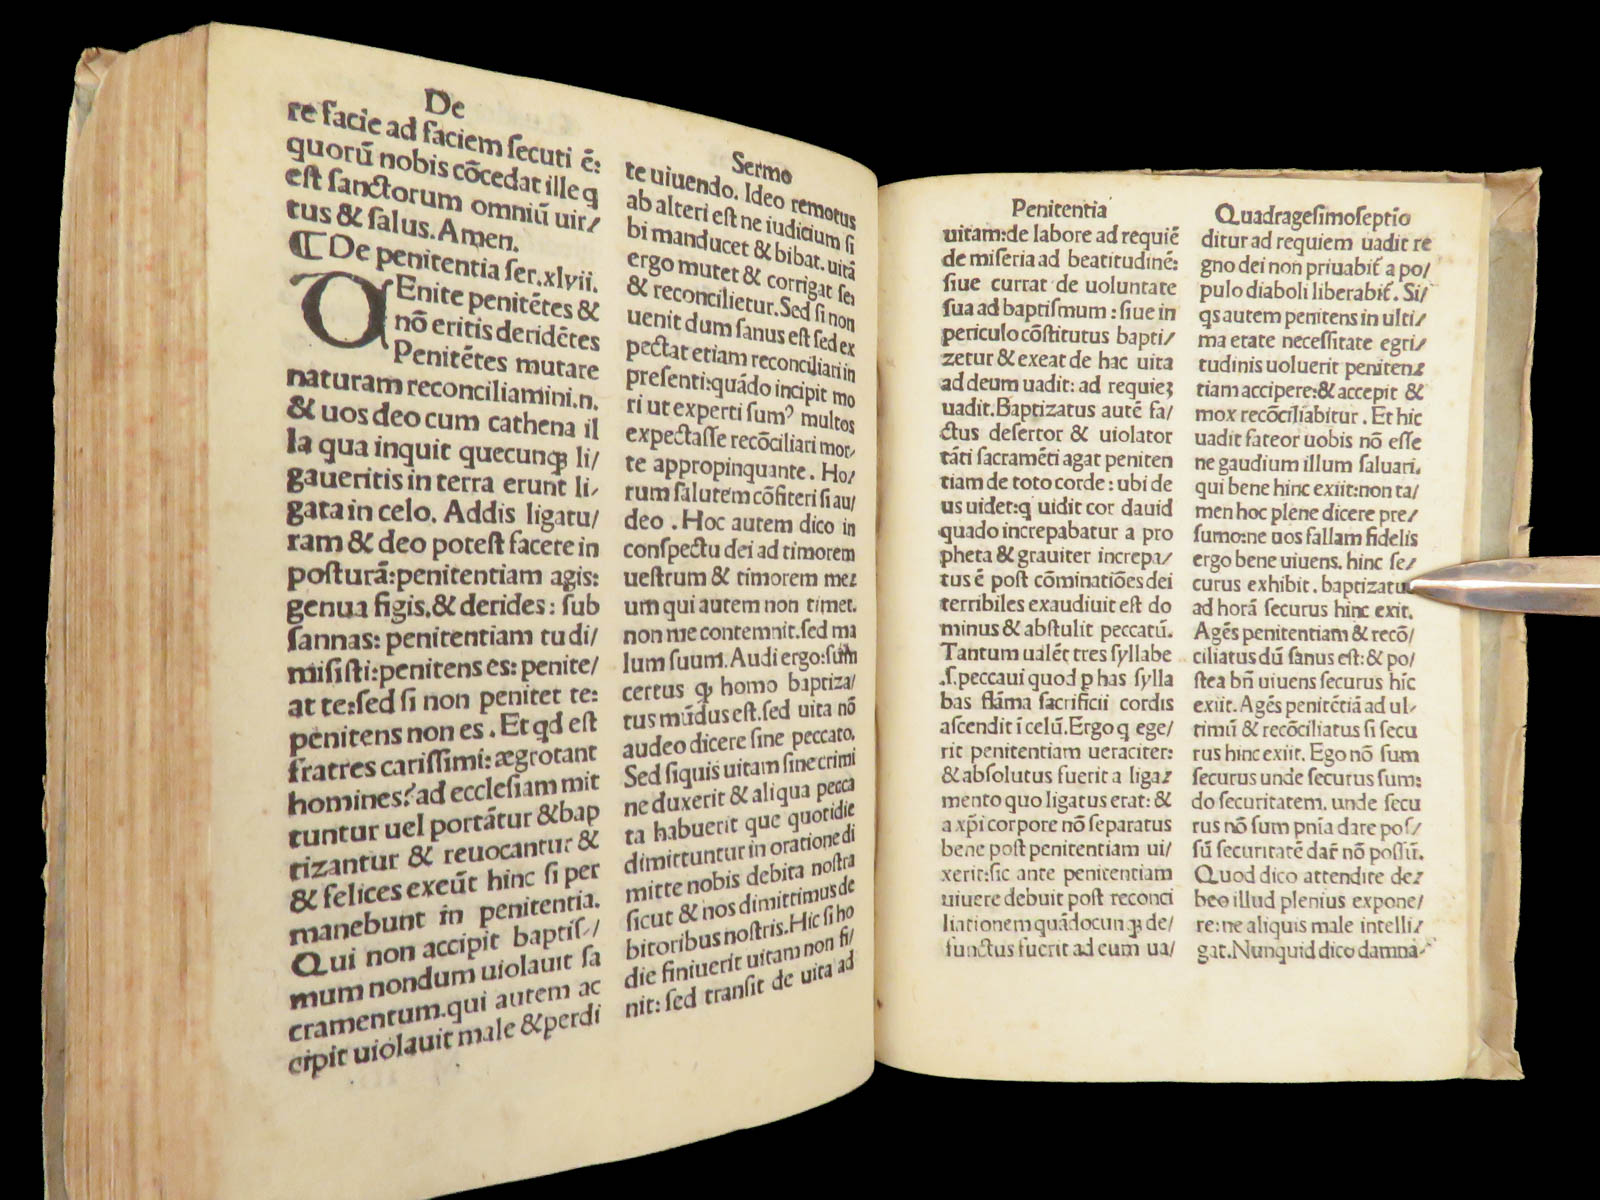 De
re facie ad faciem ſecuti ē:
quorū nobis cōcedat ille q
eſt ſanctorum omniū uir/
tus & ſalus. Amen.
¶ De penitentia ſer. xlvii.
Enite penitētes &
nō eritis deridētes
Penitētes mutare
naturam reconciliamini.n.
& uos deo cum cathena il
la qua inquit quecunqꝫ li/
gaueritis in terra erunt li/
gata in celo. Addis ligatu/
ram & deo poteſt facere in
poſturā:penitentiam agis:
genua figis.& derides: ſub
ſannas: penitentiam tu di/
miſiſti:penitens es: penite/
at te:ſed ſi non penitet te:
penitens non es. Et qd eſt
fratres cariſſimi: ægrotant
homines? ad eccleſiam mit
tuntur uel portātur & bap
tizantur & reuocantur &
& felices exeūt hinc ſi per
manebunt in penitentia.
Qui non accipit baptiſ/
mum nondum uiolauit ſa
cramentum.qui autem ac
cipit uiolauit male & perdi
Sermo
te uiuendo. Ideo remotus
ab alteri eſt ne iudicium ſi
bi manducet & bibat. uitā
ergo mutet & corrigat ſe:
& reconcilietur. Sed ſi non
uenit dum ſanus eſt ſed ex
pectat etiam reconciliari in
preſenti:quādo incipit mo
ri ut experti ſumꝰ multos
expectaſſe recōciliari mor/
te appropinquante. Ho/
rum ſalutem cōfiteri ſi au/
deo. Hoc autem dico in
conſpectu dei ad timorem
ueſtrum & timorem me/
um qui autem non timet.
non me contemnit.ſed ma
lum ſuum. Audi ergo:ſum
certus qꝫ homo baptiza/
tus mūdus eſt.ſed uita nō
audeo dicere ſine peccato.
Sed ſiquis uitam ſine crimi
ne duxerit & aliqua pecca
ta habuerit que quotidie
dimittuntur in oratione di
mitte nobis debita noſtra
ſicut & nos dimittimus de
bitoribus noſtris. Hic ſi ho
die finiuerit uitam non fi/
nit: ſed tranſit de uita ad
Penitentia
uitam:de labore ad requiē
de miſeria ad beatitudinē:
ſiue currat de uoluntate
ſua ad baptiſmum : ſiue in
periculo cōſtitutus bapti/
zetur & exeat de hac uita
ad deum uadit: ad requieꝫ
uadit. Baptizatus autē fa/
ctus deſertor & uiolator
tāti ſacramēti agat peniten
tiam de toto corde : ubi de
us uidet:q uidit cor dauid
quādo increpabatur a pro
pheta & grauiter increpa/
tus ē poſt cōminatiōes dei
terribiles exaudiuit eſt do
minus & abſtulit peccatū.
Tantum ualēt tres ſyllabe
.ſ.peccaui quod p has ſylla
bas flāma ſacrificii cordis
aſcendit ī celū. Ergo q ege/
rit penitentiam ueraciter:
& abſolutus fuerit a liga/
mento quo ligatus erat: &
a xp̄i corpore nō ſeparatus
bene poſt penitentiam ui/
xerit:ſic ante penitentiam
uiuere debuit poſt reconci
liationem quādocunqꝫ de/
functus fuerit ad eum ua/
Quadrageſimoſeptio
ditur ad requiem uadit re
gno dei non priuabit̄ a po/
pulo diaboli liberabit̄. Si/
qs autem penitens in ulti/
ma etate neceſſitate egri/
tudinis uoluerit peniten/
tiam accipere:& accepit &
mox recōciliabitur. Et hic
uadit fateor uobis nō eſſe
ne gaudium illum ſaluari.
qui bene hinc exiit:non ta/
men hoc plene dicere pre/
ſumo:ne uos fallam fidelis
ergo bene uiuens. hinc ſe/
curus exhibit. baptizatus
ad horā ſecurus hinc exit.
Agēs penitentiam & recō/
ciliatus dū ſanus eſt: & po/
ſtea bn̄ uiuens ſecurus hīc
exiit. Agēs penitētiā ad ul/
timū & recōciliatus ſi ſecu
rus hinc exiit. Ego nō ſum
ſecurus unde ſecurus ſum:
do ſecuritatem. unde ſecu
rus nō ſum pnīa dare poſ/
ſū ſecuritatē dar̄ nō poſſū.
Quod dico attendite de/
beo illud plenius expone/
re:ne aliquis male intelli/
gat. Nunquid dico damna/